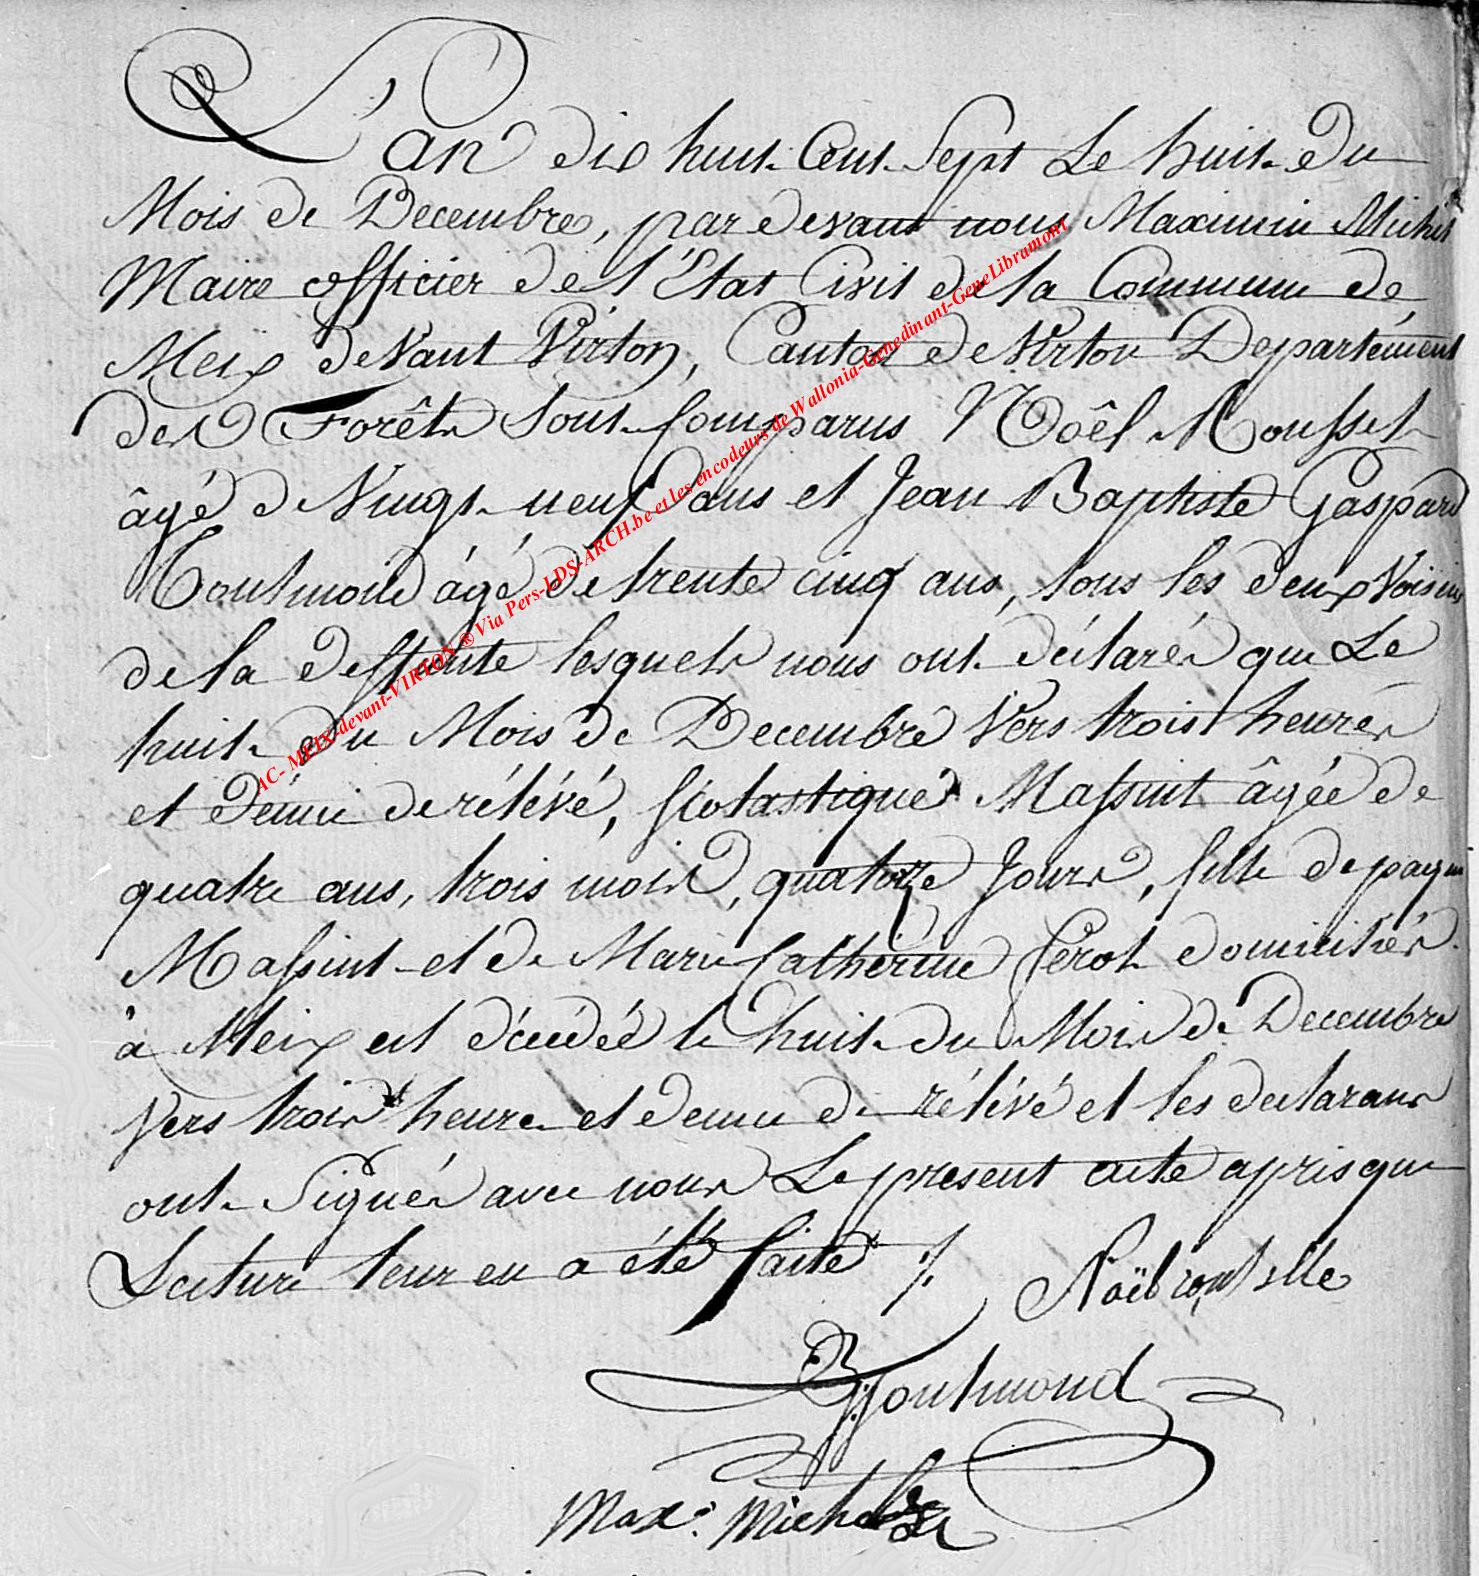 L'an dix huit Cent Sept Le huit du
Mois de Decembre, par devant nous Maximin Michel
Maire officier de l'État Civil de la Commune de
Meix devant Virton, Canton de Virton Departement
des Forêts Sont Comparus Noël Rousselle
âgé de Vingt neuf ans et Jean Baptiste Gaspard
Goulmond âgé de trente cinq ans, tous les deux Voisins
de la deffunte lesquels nous ont déclarés que Le
huit du Mois de Decembre Vers trois heures
et demie de rélévé, scolastique Massint âgée de
quatre ans, trois mois, quatorze Jours, fille de
Massint et de Marie Catherine Perot domiciliés
à Meix est décédée le huit du Mois de Decembre
Vers trois heures et demie de rélévé et les declarans
ont Signés avec nous Le present acte après que
Lecture leur en a été faite ./.
Noël
Goulmond
Max: Michel
AC- MEIX-devant-VIRTON ® Via Pers-LDS-ARCH.be et les encodeurs de Wallonia-Genedinant-GeneLibramont